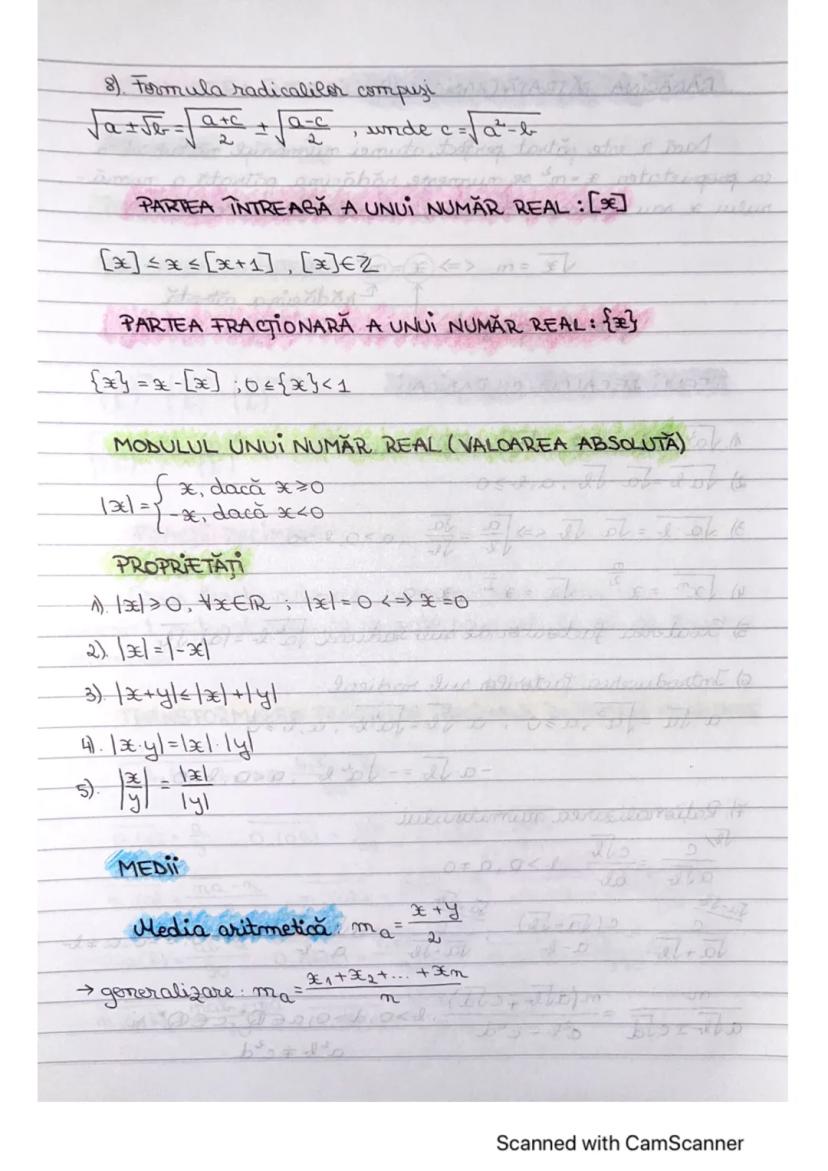 8). Formula radicalilor compuși
√(a±√b) = √((a+c)/2) ± √((a-c)/2) , unde c = √(a²-b)
PARTEA ÎNTREAGĂ A UNUI NUMĂR REAL : [x]
[x] ≤ x ≤ [x+1] , [x]∈ℤ
PARTEA FRACȚIONARĂ A UNUI NUMĂR REAL: {x}
{x} = x-[x] ; 0≤{x}<1
MODULUL UNUI NUMĂR REAL (VALOAREA ABSOLUTĂ)
|x| = { x, dacă x≥0
-x, dacă x<0
PROPRIETĂȚI
1). |x|≥0, ∀x∈ℝ ; |x|=0 <=> x=0
2). |x|=|-x|
3). |x+y|≤|x|+|y|
4). |x·y|=|x|·|y|
5). |x/y| = |x|/|y|
MEDII
Media aritmetică: mₐ = (x+y)/2
→ generalizare: mₐ = (x₁+x₂+...+xₙ)/n
Scanned with CamScanner